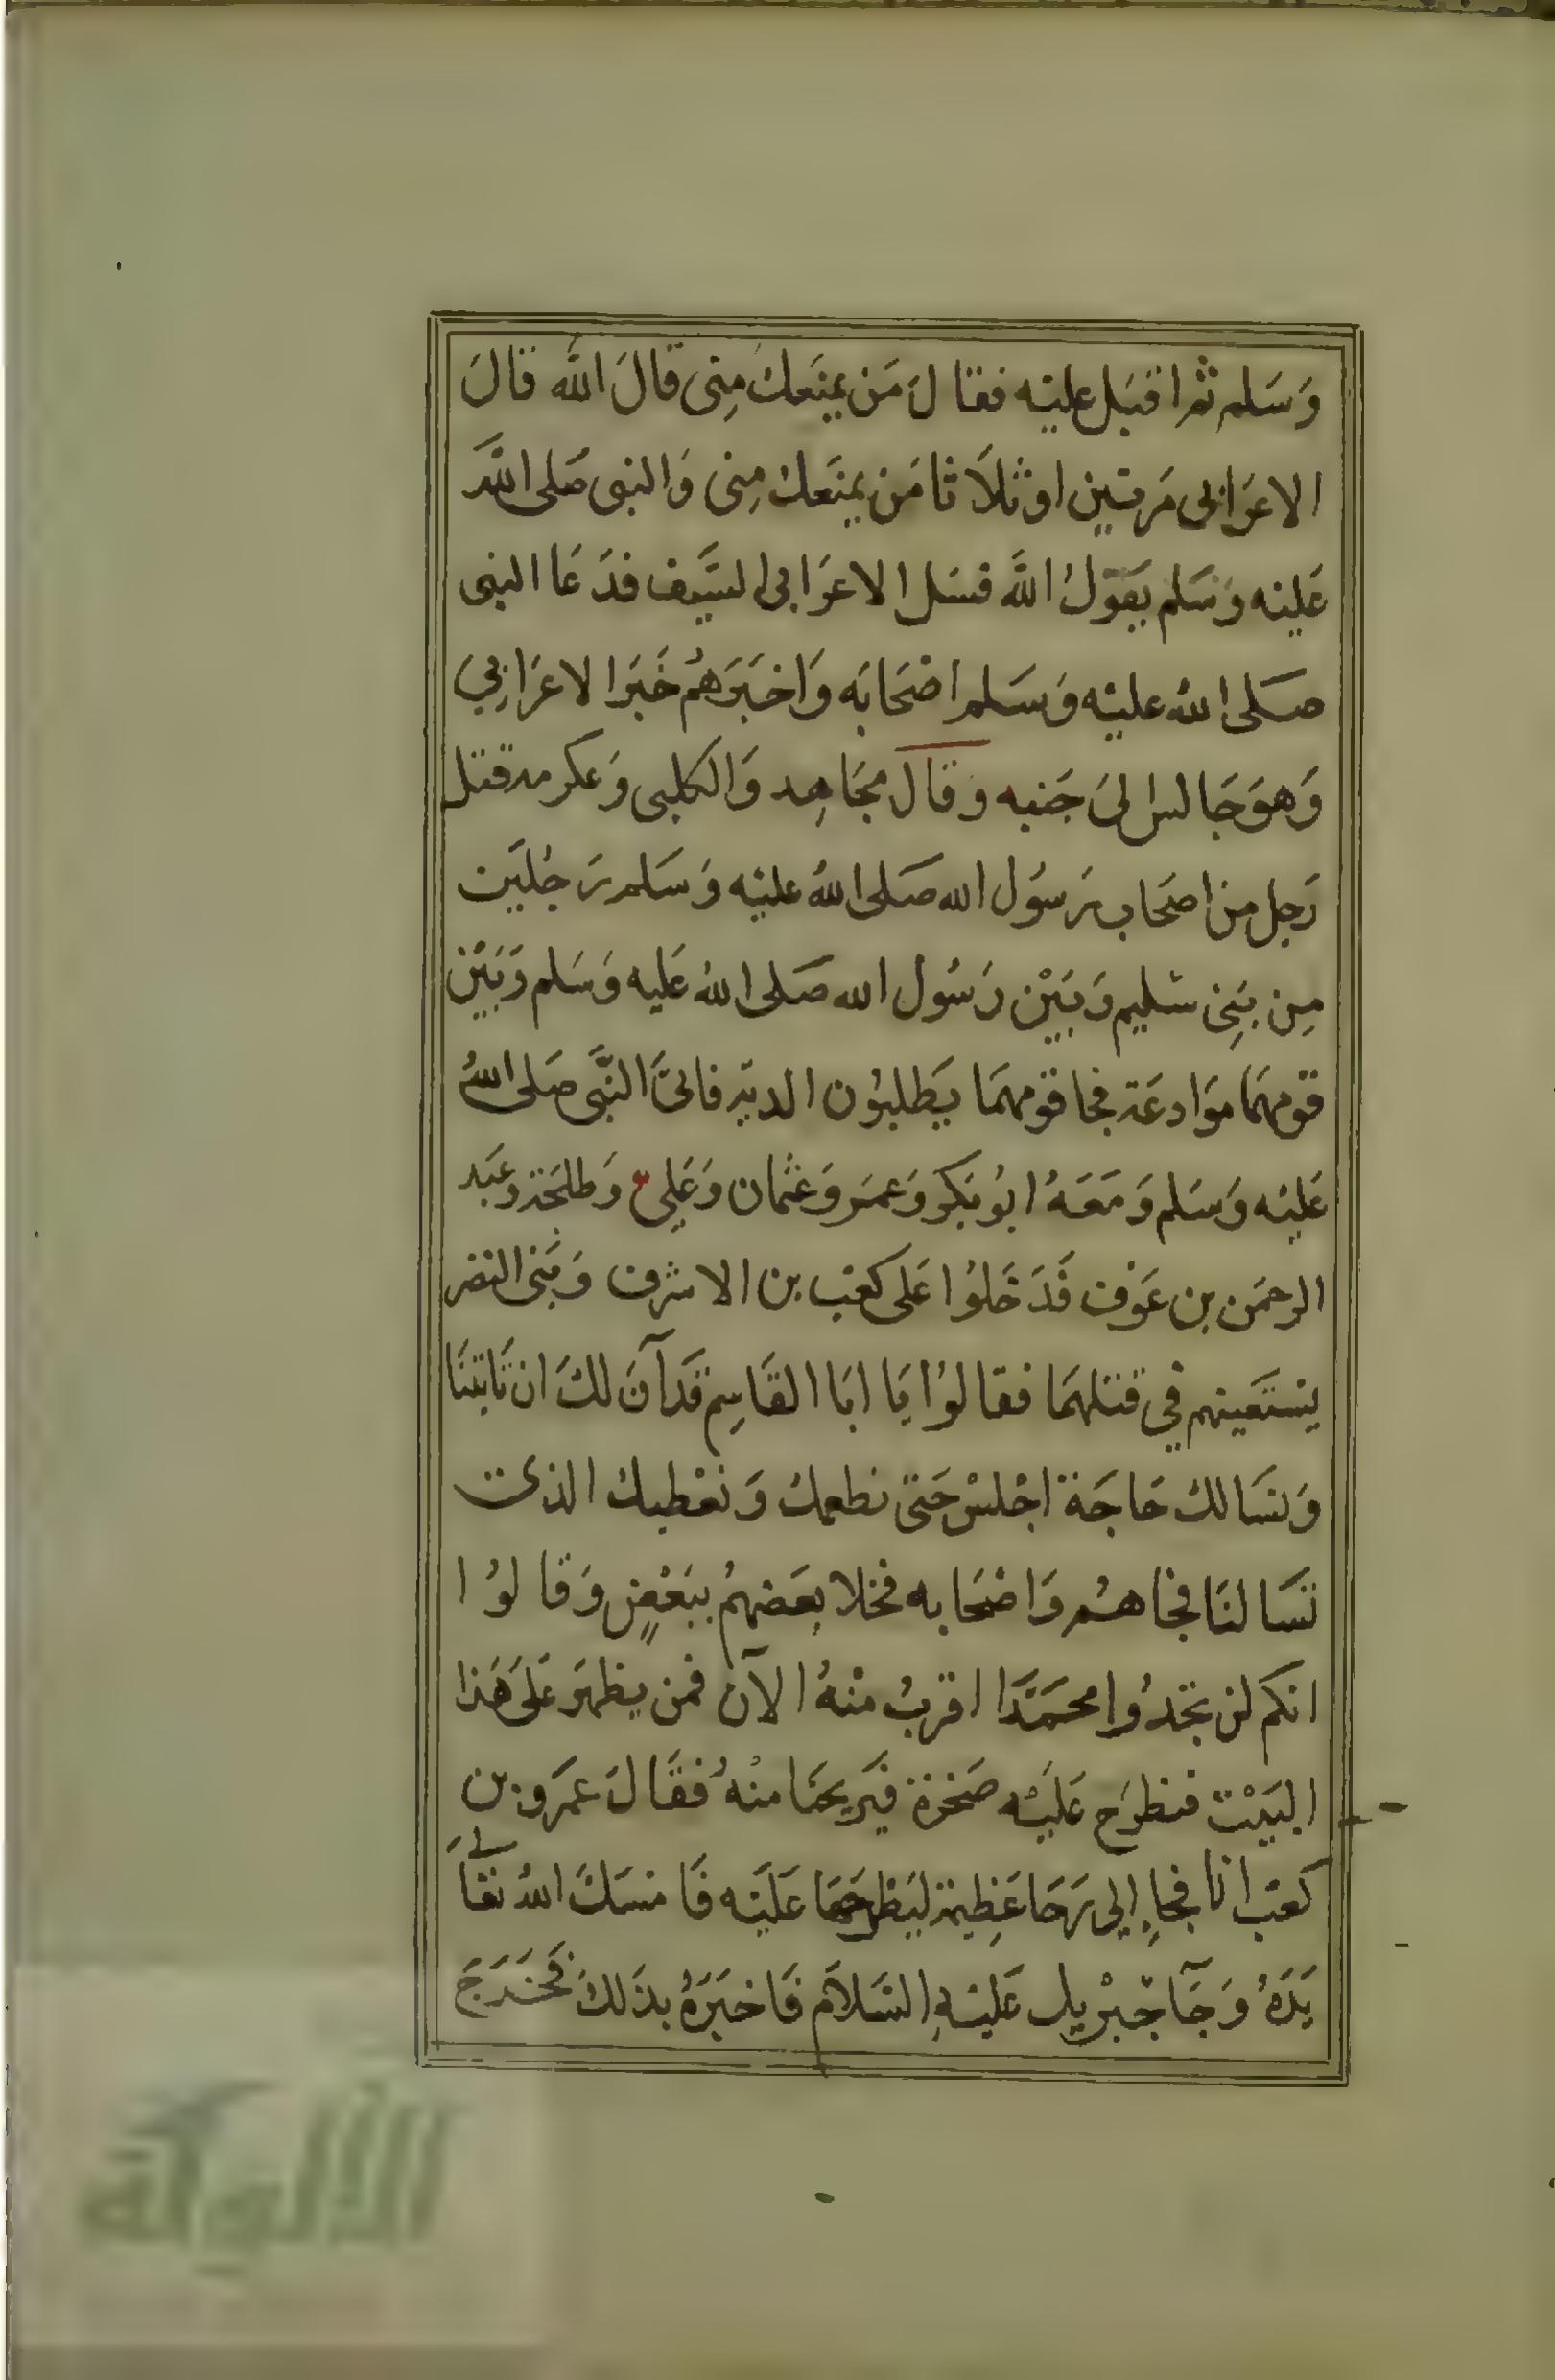 وَسَلم ثم اقبَل عليْه فقال مَن يمنَعكَ مِنى قالَ الله قالَ
الاعرَابى مَرتين او ثلاَثا مَن يمنَعك مِنى وَالنبى صَلى اللهُ
عَليْه وَسَلم يَقولُ اللَّه فسَل الاعرَابى السَّيف فدَعَا النبى
صَلى اللهُ عليْه وَسَلم اصْحَابَه وَاخبَرَهُم خَبَر الاعرَابِي
وَهوَ جَالس الىَ جَنبه وَقال مجَاهِد وَالكلبى وَعكرمه قتل
رَجل من اصحَاب رَسُول الله صَلى اللهُ عليْه وَسَلم رَجُلَين
مِن بَنِى سُليم وَبَيْن رَسُول الله صَلى اللهُ عَليه وَسَلم وَبَيْن
قومهمَا موَادعَة فجا قومهمَا يَطلبُون الدية فاتىَ النَّبَى صَلى اللهُ
عَليْه وَسَلم وَمَعَهُ ابُو بَكر وَعمَر وَعثمان وَعَلى وَطلحَة وعَبد
الرحمَن بن عَوْف فَدَخَلوُا عَلى كعْب بن الاشرف وَبَنى النضر
يسْتَعينهم في قتلهمَا فقالوُا يَا ابَا القَاسِم قَد آنَ لكَ ان تَاتيَنَا
وَتسَالك حَاجَة اجْلسْ حَتى نطعمك وَنعْطيك الذى
تَسَالنَا فجَا هُم وَاصْحَابه فخلا بعَضهمُ ببَعْضٍ وَقالوُا
انكم لن تجَدُوا محمَّدًا اقربُ منْهُ الآن فمن يظهَر عَلىَ هَذا
البَيْت فيَطرَح عَليْه صَخرة فيَريحنَا منْهُ فقَالَ عمَرو بن
كعْب انا فجاءِ الى رَحَا عَظِيمة ليَطرحهَا عَليْه فَامسَكَ اللهُ تعَالى
يَدَهُ وَجَآ جبْريل عَليْهِ السَّلاَم فَاخبَرَهُ بذَلكَ فَخَرَجَ
الألوكة